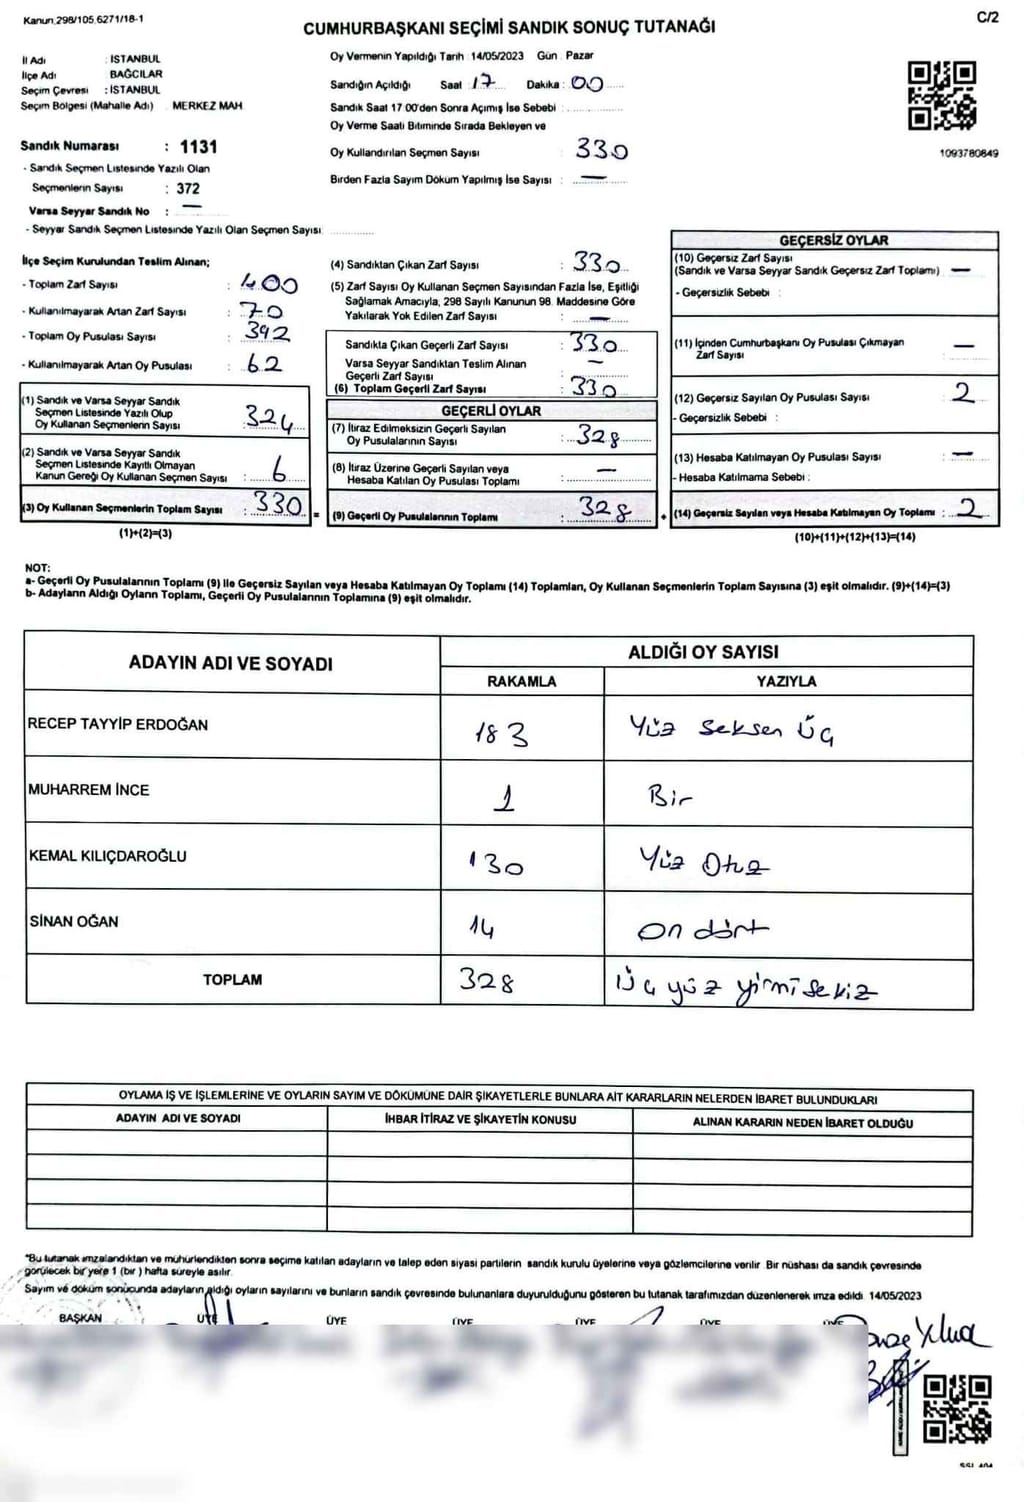 Kanun 298/105 6271/18-1
C/2
CUMHURBAŞKANI SEÇİMİ SANDIK SONUÇ TUTANAĞI
İl Adı : İSTANBUL
İlçe Adı : BAĞCILAR
Seçim Çevresi : İSTANBUL
Seçim Bölgesi (Mahalle Adı) MERKEZ MAH
Sandık Numarası : 1131
- Sandık Seçmen Listesinde Yazılı Olan
Seçmenlerin Sayısı : 372
Varsa Seyyar Sandık No : —
- Seyyar Sandık Seçmen Listesinde Yazılı Olan Seçmen Sayısı:
Oy Vermenin Yapıldığı Tarih 14/05/2023 Gün Pazar
Sandığın Açıldığı Saat : 17 Dakika : 00
Sandık Saat 17 00'den Sonra Açımış İse Sebebi :
Oy Verme Saati Bitiminde Sırada Bekleyen ve
Oy Kullandırılan Seçmen Sayısı : 330
Birden Fazla Sayım Döküm Yapılmış İse Sayısı : —
1093780849
İlçe Seçim Kurulundan Teslim Alınan;
- Toplam Zarf Sayısı : 400
- Kullanılmayarak Artan Zarf Sayısı : 70
- Toplam Oy Pusulası Sayısı : 392
- Kullanılmayarak Artan Oy Pusulası : 62
(1) Sandık ve Varsa Seyyar Sandık
Seçmen Listesinde Yazılı Olup
Oy Kullanan Seçmenlerin Sayısı : 324
(2) Sandık ve Varsa Seyyar Sandık
Seçmen Listesinde Kayıtlı Olmayan
Kanun Gereği Oy Kullanan Seçmen Sayısı : 6
(3) Oy Kullanan Seçmenlerin Toplam Sayısı : 330
(1)+(2)=(3)
(4) Sandıktan Çıkan Zarf Sayısı : 330
(5) Zarf Sayısı Oy Kullanan Seçmen Sayısından Fazla İse, Eşitliği
Sağlamak Amacıyla, 298 Sayılı Kanunun 98. Maddesine Göre
Yakılarak Yok Edilen Zarf Sayısı : —
Sandıkta Çıkan Geçerli Zarf Sayısı : 330
Varsa Seyyar Sandıktan Teslim Alınan
Geçerli Zarf Sayısı : —
(6) Toplam Geçerli Zarf Sayısı : 330
GEÇERLİ OYLAR
(7) İtiraz Edilmeksizin Geçerli Sayılan
Oy Pusulalarının Sayısı : 328
(8) İtiraz Üzerine Geçerli Sayılan veya
Hesaba Katılan Oy Pusulası Toplamı —
= (9) Geçerli Oy Pusulalarının Toplamı : 328
GEÇERSİZ OYLAR
(10) Geçersiz Zarf Sayısı
(Sandık ve Varsa Seyyar Sandık Geçersiz Zarf Toplamı) : —
- Geçersizlik Sebebi :
(11) İçinden Cumhurbaşkanı Oy Pusulası Çıkmayan
Zarf Sayısı —
(12) Geçersiz Sayılan Oy Pusulası Sayısı : 2
- Geçersizlik Sebebi :
(13) Hesaba Katılmayan Oy Pusulası Sayısı : —
- Hesaba Katılmama Sebebi :
+ (14) Geçersiz Sayılan veya Hesaba Katılmayan Oy Toplamı : 2
(10)+(11)+(12)+(13)=(14)
NOT:
a- Geçerli Oy Pusulalarının Toplamı (9) İle Geçersiz Sayılan veya Hesaba Katılmayan Oy Toplamı (14) Toplamları, Oy Kullanan Seçmenlerin Toplam Sayısına (3) eşit olmalıdır. (9)+(14)=(3)
b- Adayların Aldığı Oyların Toplamı, Geçerli Oy Pusulalarının Toplamına (9) eşit olmalıdır.
ADAYIN ADI VE SOYADI
ALDIĞI OY SAYISI
RAKAMLA YAZIYLA
RECEP TAYYİP ERDOĞAN 183 Yüz Seksen Üç
MUHARREM İNCE 1 Bir
KEMAL KILIÇDAROĞLU 130 Yüz Otuz
SİNAN OĞAN 14 On dört
TOPLAM 328 Üç yüz yirmi sekiz
OYLAMA İŞ VE İŞLEMLERİNE VE OYLARIN SAYIM VE DÖKÜMÜNE DAİR ŞİKAYETLERLE BUNLARA AİT KARARLARIN NELERDEN İBARET BULUNDUKLARI
ADAYIN ADI VE SOYADI İHBAR İTİRAZ VE ŞİKAYETİN KONUSU ALINAN KARARIN NEDEN İBARET OLDUĞU
*Bu tutanak imzalandıktan ve mühürlendikten sonra seçime katılan adayların ve talep eden siyasi partilerin sandık kurulu üyelerine veya gözlemcilerine verilir Bir nüshası da sandık çevresinde
görülecek bir yere 1 (bir ) hafta süreyle asılır.
Sayım ve döküm sonucunda adayların aldığı oyların sayılarını ve bunların sandık çevresinde bulunanlara duyurulduğunu gösteren bu tutanak tarafımızdan düzenlenerek imza edildi 14/05/2023
BAŞKAN ÜYE ÜYE ÜYE ÜYE ÜYE ÜYE